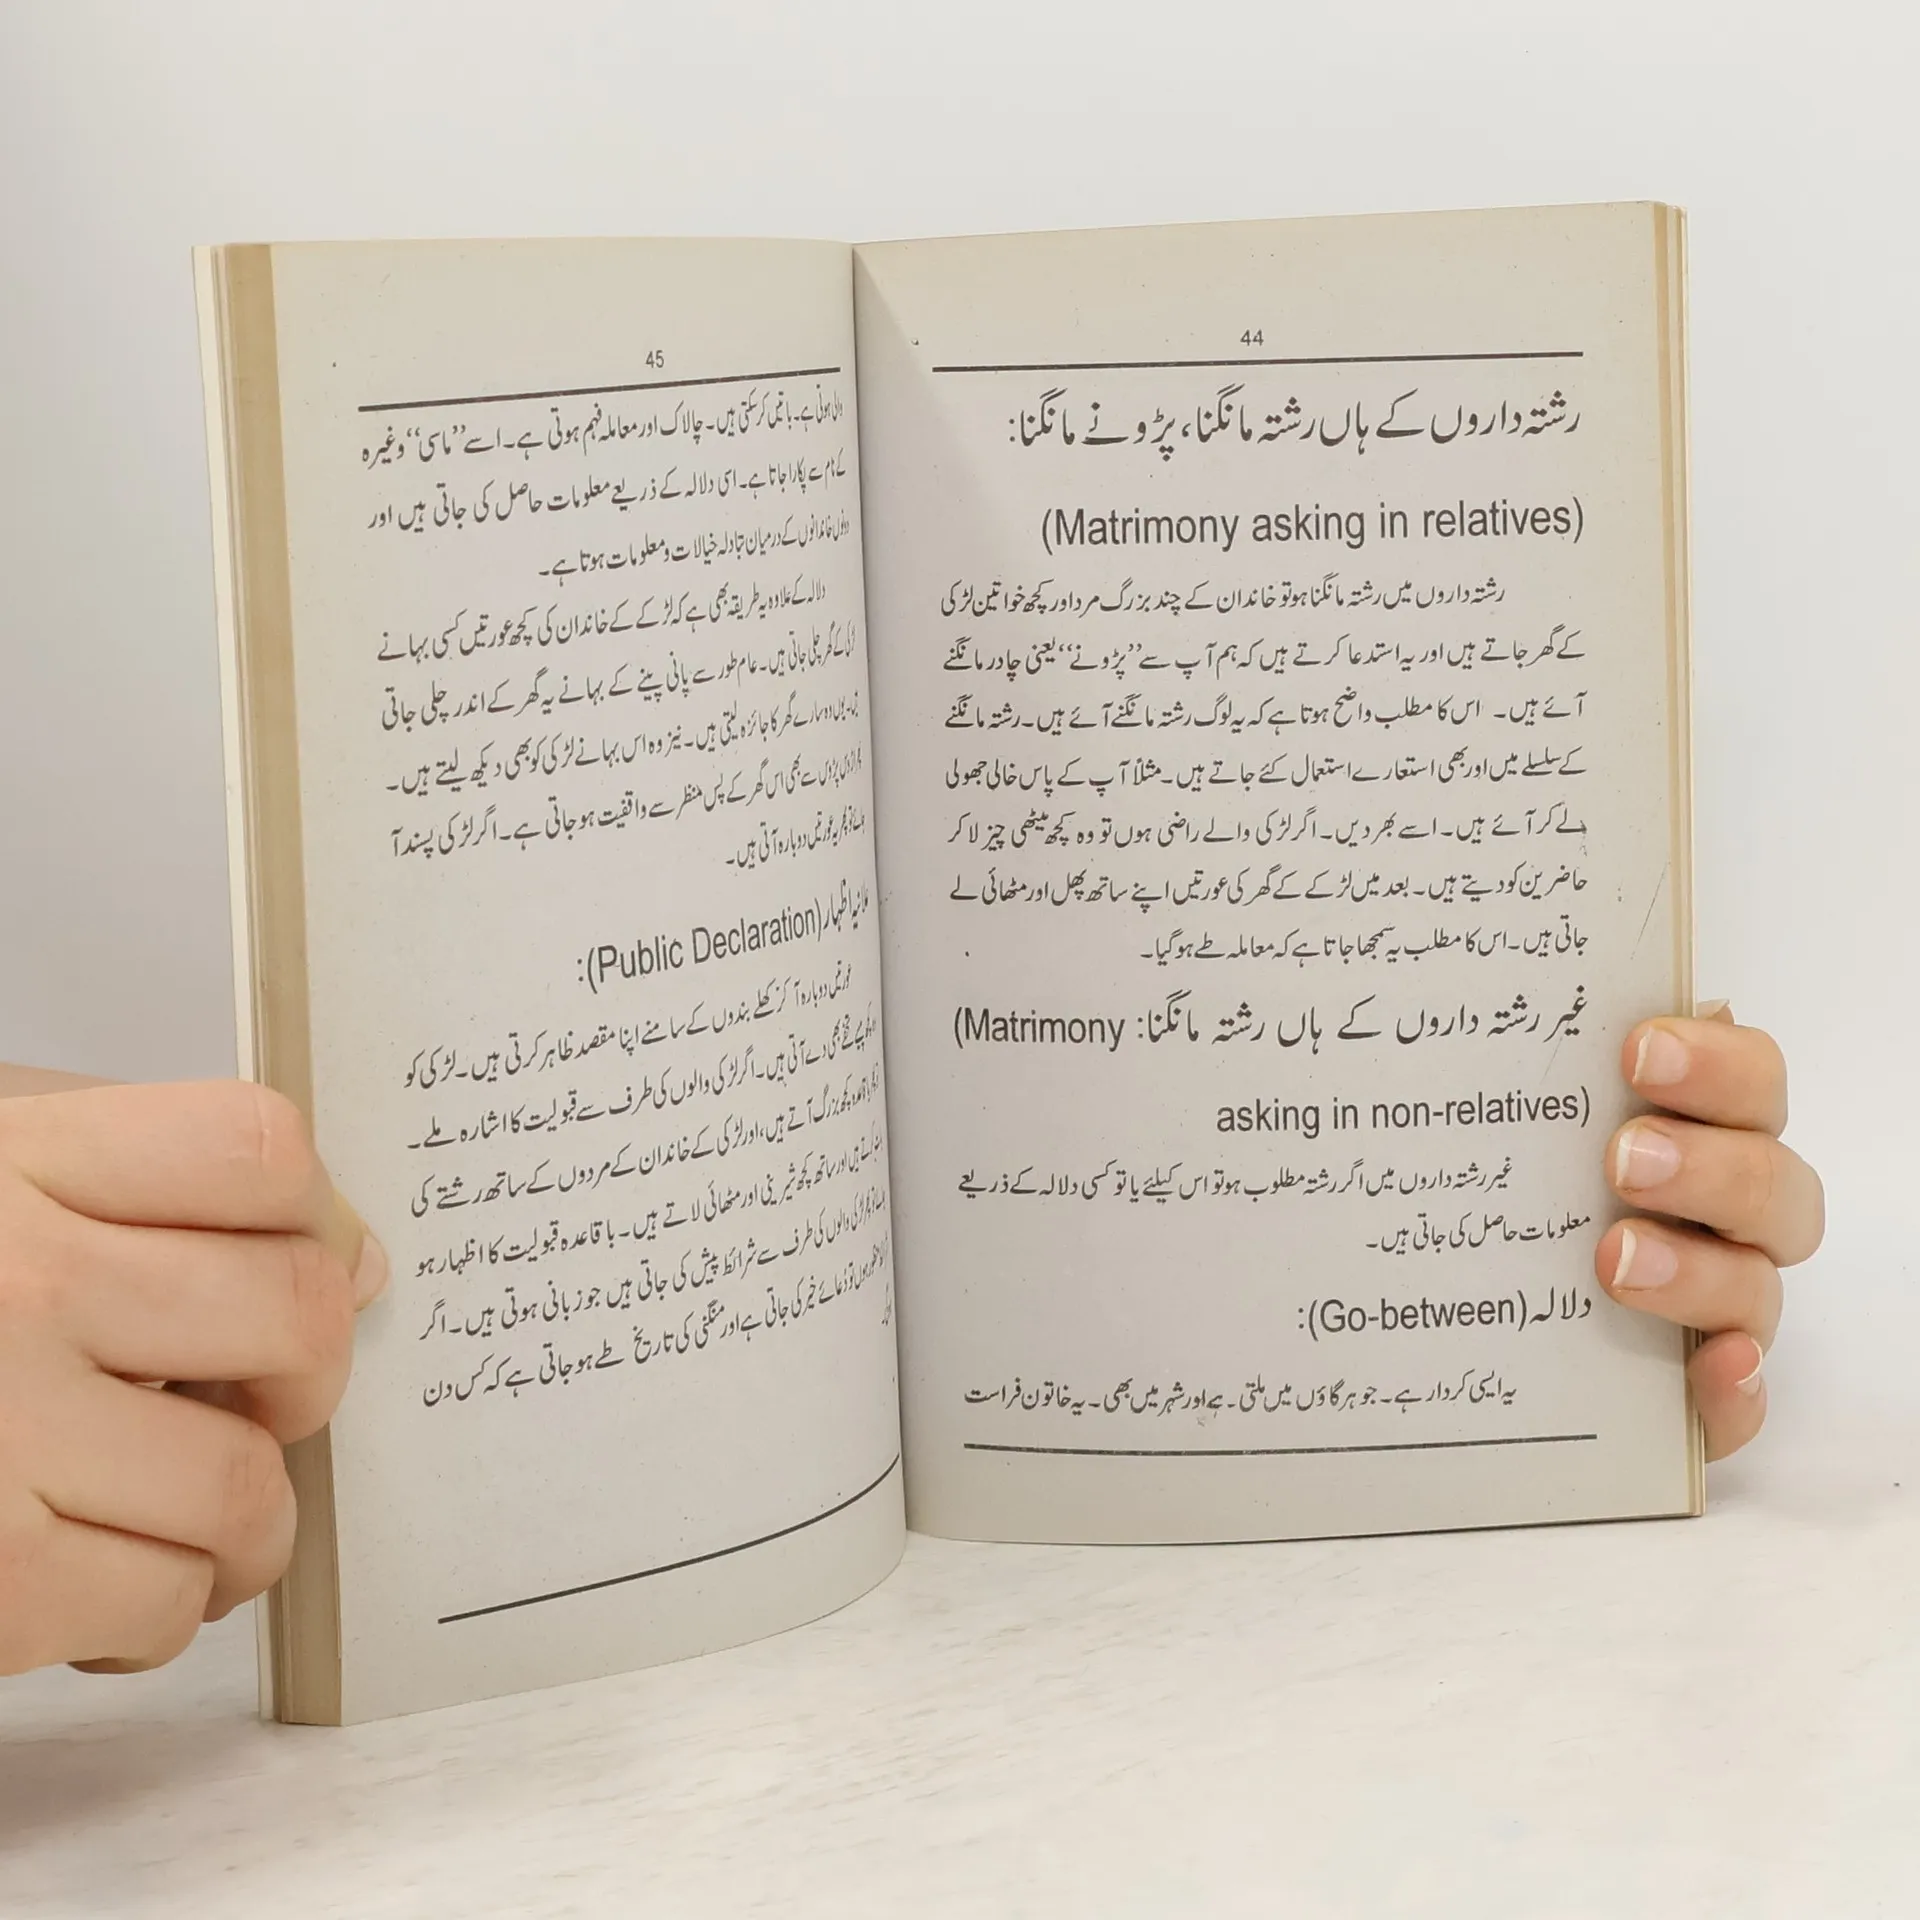 44
رشتہ داروں کے ہاں رشتہ مانگنا، پڑونے مانگنا:
(Matrimony asking in relatives)
رشتہ داروں میں رشتہ مانگنا ہو تو خاندان کے چند بزرگ مرد اور کچھ خواتین لڑکی
کے گھر جاتے ہیں اور یہ استدعا کرتے ہیں کہ ہم آپ سے ”پڑونے“ یعنی چادر مانگنے
آئے ہیں۔ اس کا مطلب واضح ہوتا ہے کہ یہ لوگ رشتہ مانگنے آئے ہیں۔ رشتہ مانگنے
کے سلسلے میں اور بھی استعارے استعمال کئے جاتے ہیں۔ مثلاً آپ کے پاس خالی جھولی
لے کر آئے ہیں۔ اسے بھر دیں۔ اگر لڑکی والے راضی ہوں تو وہ کچھ میٹھی چیز لا کر
حاضرین کو دیتے ہیں۔ بعد میں لڑکے کے گھر کی عورتیں اپنے ساتھ پھل اور مٹھائی لے
جاتی ہیں۔ اس کا مطلب یہ سمجھا جاتا ہے کہ معاملہ طے ہو گیا۔
غیر رشتہ داروں کے ہاں رشتہ مانگنا: (Matrimony
asking in non-relatives)
غیر رشتہ داروں میں اگر رشتہ مطلوب ہو تو اس کیلئے یا تو کسی دلالہ کے ذریعے
معلومات حاصل کی جاتی ہیں۔
دلالہ (Go-between):
یہ ایسی کردار ہے۔ جو ہر گاؤں میں ملتی ہے۔ اور شہر میں بھی۔ یہ خاتون فراست
45
والی ہوتی ہے۔ باتیں کر سکتی ہیں۔ چالاک اور معاملہ فہم ہوتی ہے۔ اسے ”ماسی“ وغیرہ
کے نام سے پکارا جاتا ہے۔ اسی دلالہ کے ذریعے معلومات حاصل کی جاتی ہیں اور
دونوں خاندانوں کے درمیان تبادلہ خیالات و معلومات ہوتا ہے۔
دلالہ کے علاوہ یہ طریقہ بھی ہے کہ لڑکے کے خاندان کی کچھ عورتیں کسی بہانے
لڑکی کے گھر چلی جاتی ہیں۔ عام طور سے پانی پینے کے بہانے یہ گھر کے اندر چلی جاتی
ہیں۔ یوں وہ سارے گھر کا جائزہ لیتی ہیں۔ نیز وہ اس بہانے لڑکی کو بھی دیکھ لیتے ہیں۔
پڑوس سے بھی اس گھر کے پس منظر سے واقفیت ہو جاتی ہے۔ اگر لڑکی پسند آ
جائے تو پھر یہ عورتیں دوبارہ آتی ہیں۔
علانیہ اظہار (Public Declaration):
عورتیں دوبارہ آ کر کھلے بندوں کے سامنے اپنا مقصد ظاہر کرتی ہیں۔ لڑکی کو
تحفے بھی دے آتی ہیں۔ اگر لڑکی والوں کی طرف سے قبولیت کا اشارہ ملے۔
باقاعدہ کچھ بزرگ آتے ہیں، اور لڑکی کے خاندان کے مردوں کے ساتھ رشتے کی
بات کرتے ہیں اور ساتھ کچھ شیرینی اور مٹھائی لاتے ہیں۔ باقاعدہ قبولیت کا اظہار ہو
لڑکی والوں کی طرف سے شرائط پیش کی جاتی ہیں جو زبانی ہوتی ہیں۔ اگر
منظور ہوں تو دُعائے خیر کی جاتی ہے اور منگنی کی تاریخ طے ہو جاتی ہے کہ کس دن